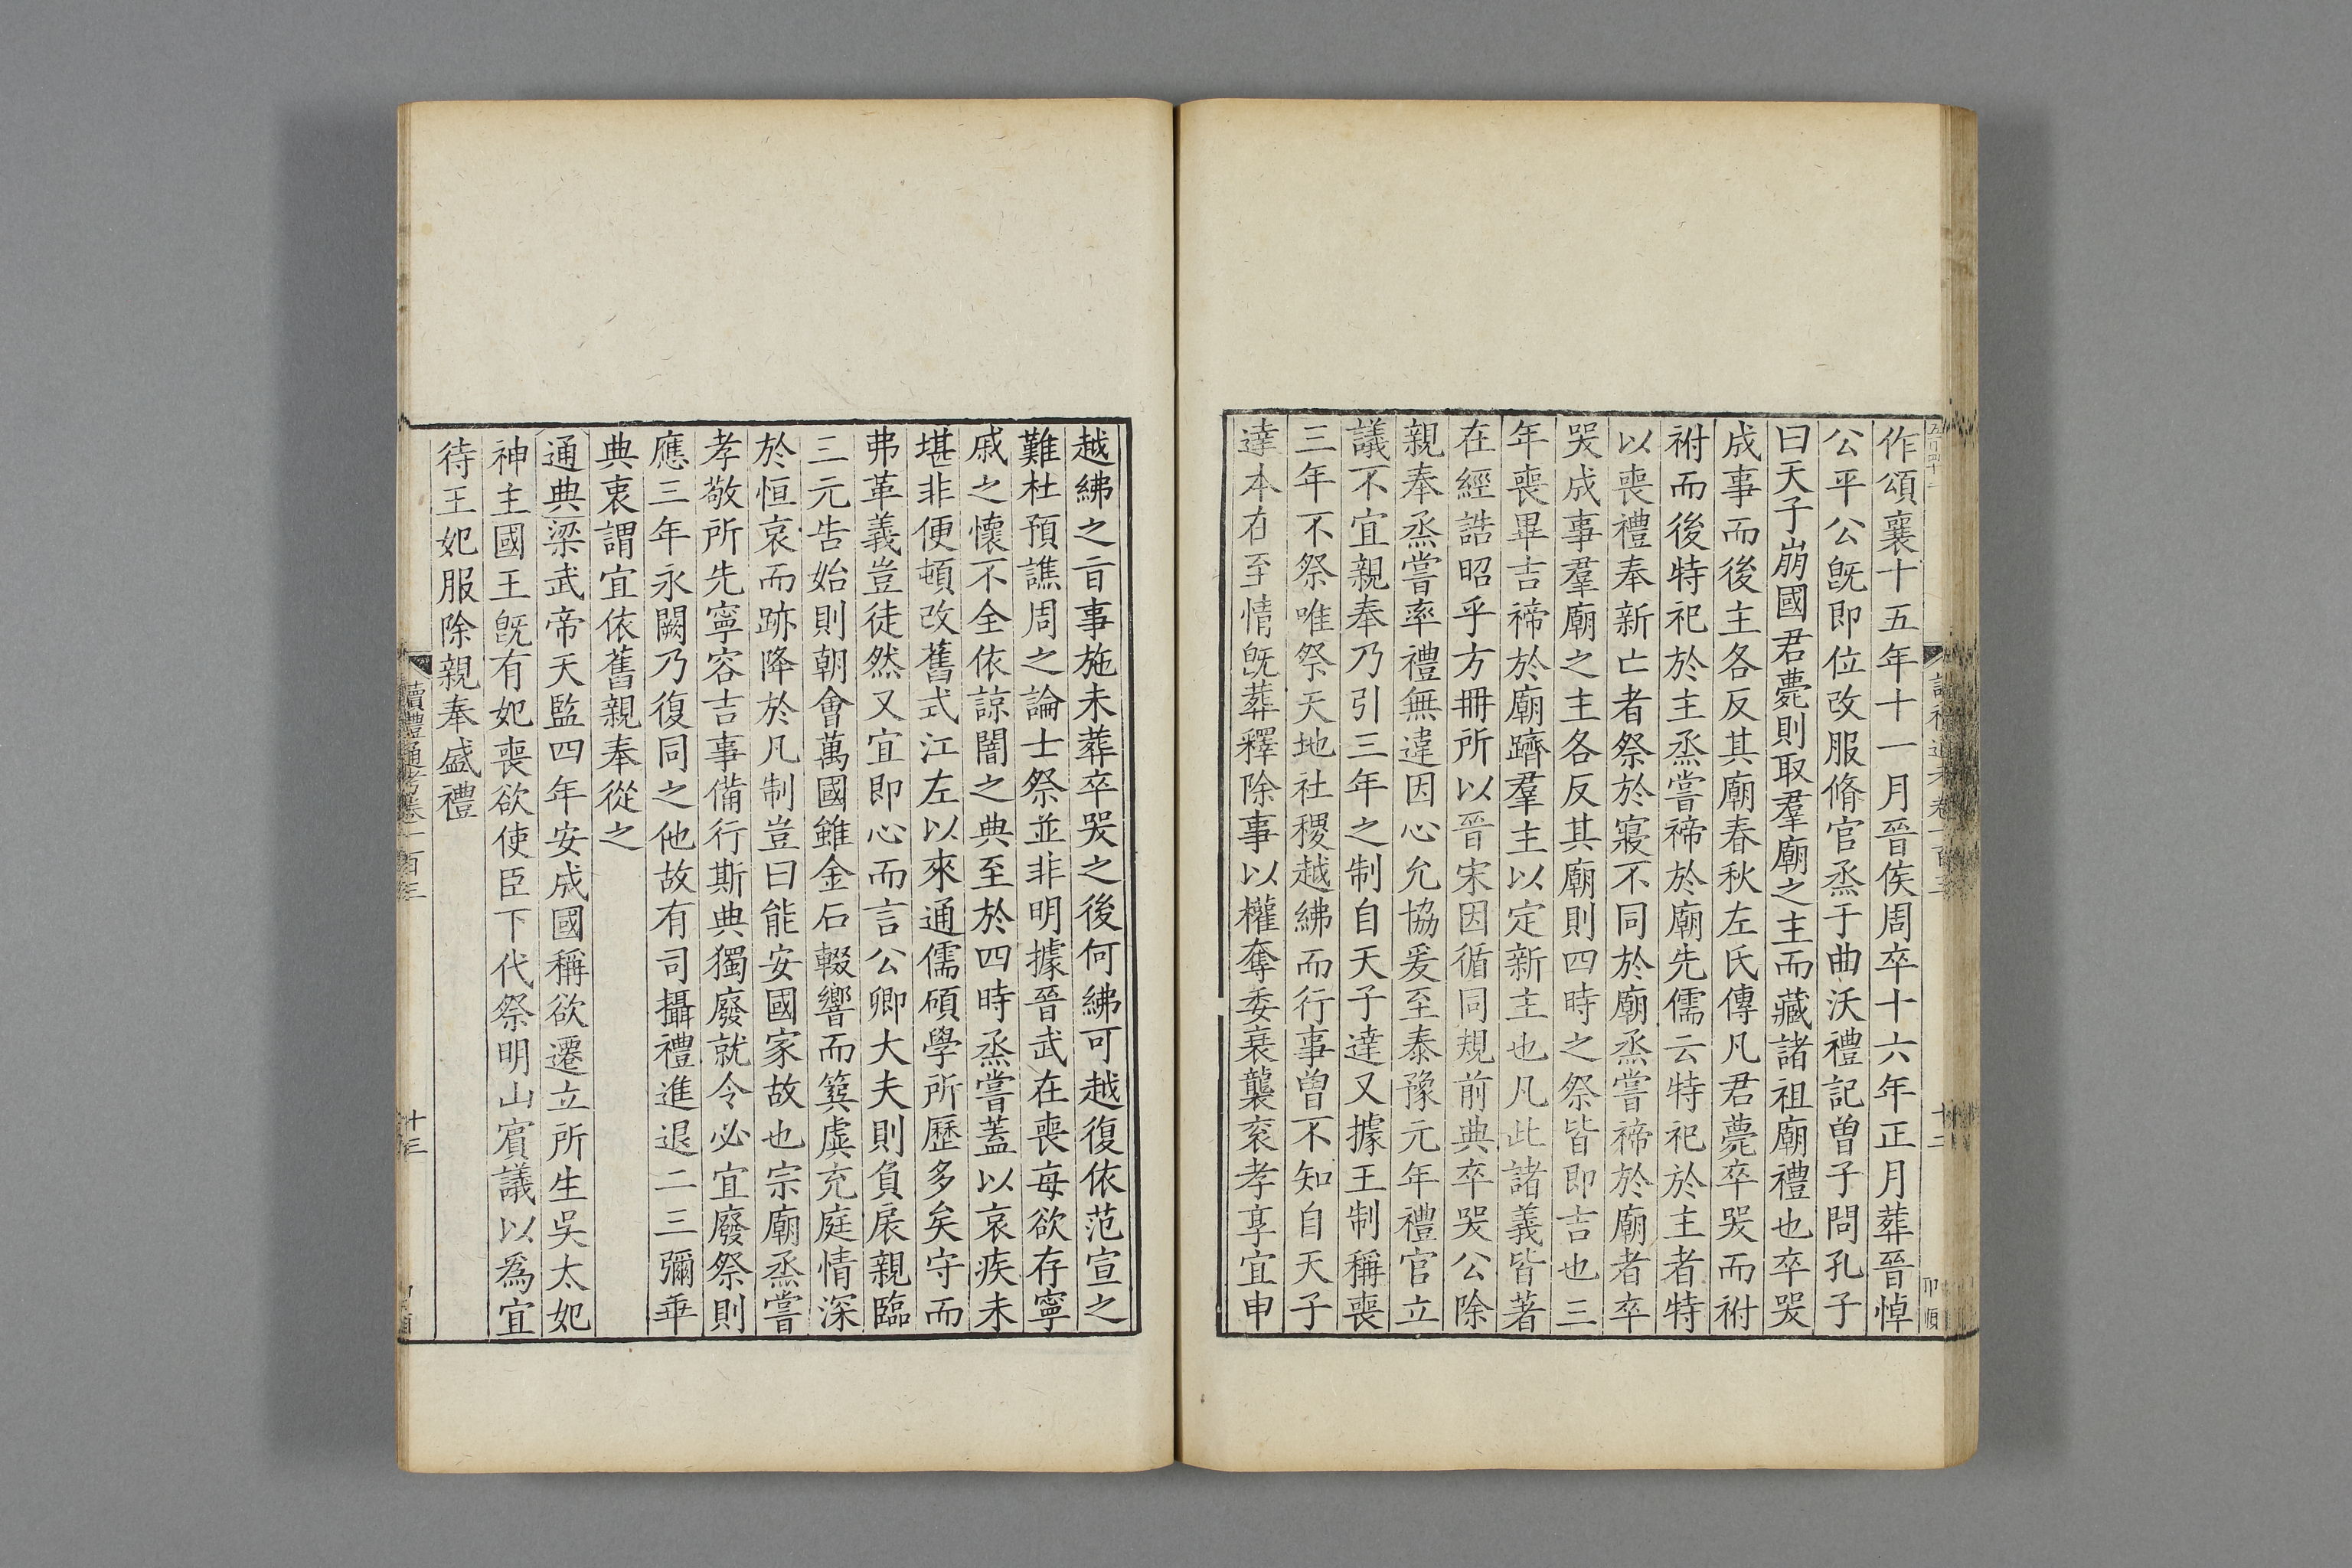 作頌襄十五年十一月晉侯周卒十六年正月葬晉悼
公平公旣即位改服脩官烝于曲沃禮記曾子問孔子
曰天子崩國君薨則取羣廟之主而藏諸祖廟禮也卒哭
成事而後主各反其廟春秋左氏傳凡君薨卒哭而祔
祔而後特祀於主烝嘗禘於廟先儒云特祀於主者特
以喪禮奉新亡者祭於寢不同於廟烝嘗禘於廟者卒
哭成事羣廟之主各反其廟則四時之祭皆即吉也三
年喪畢吉禘於廟躋羣主以定新主也凡此諸義皆著
在經誥昭乎方冊所以晉宋因循同規前典卒哭公除
親奉烝嘗率禮無違因心允協爰至泰豫元年禮官立
議不宜親奉乃引三年之制自天子達又據王制稱喪
三年不祭唯祭天地社稷越紼而行事曾不知自天子
達本在至情旣葬釋除事以權奪委衰襲衮孝享宜申
越紼之旨事施未葬卒哭之後何紼可越復依范宣之
難杜預譙周之論士祭並非明據晉武在喪每欲存寧
戚之懷不全依諒闇之典至於四時烝嘗蓋以哀疾未
堪非便頓改舊式江左以來通儒碩學所歷多矣守而
弗革義豈徒然又宜即心而言公卿大夫則負扆親臨
三元告始則朝會萬國雖金石輟響而簨虡充庭情深
於恒哀而跡降於凡制豈曰能安國家故也宗廟烝嘗
孝敬所先寧容吉事備行斯典獨廢就令必宜廢祭則
應三年永闕乃復同之他故有司攝禮進退二三彌乖
典衷謂宜依舊親奉從之
通典梁武帝天監四年安成國稱欲遷立所生吳太妃
神主國王旣有妃喪欲使臣下代祭明山賓議以爲宜
待王妃服除親奉盛禮
讀禮通考卷一百三
十三